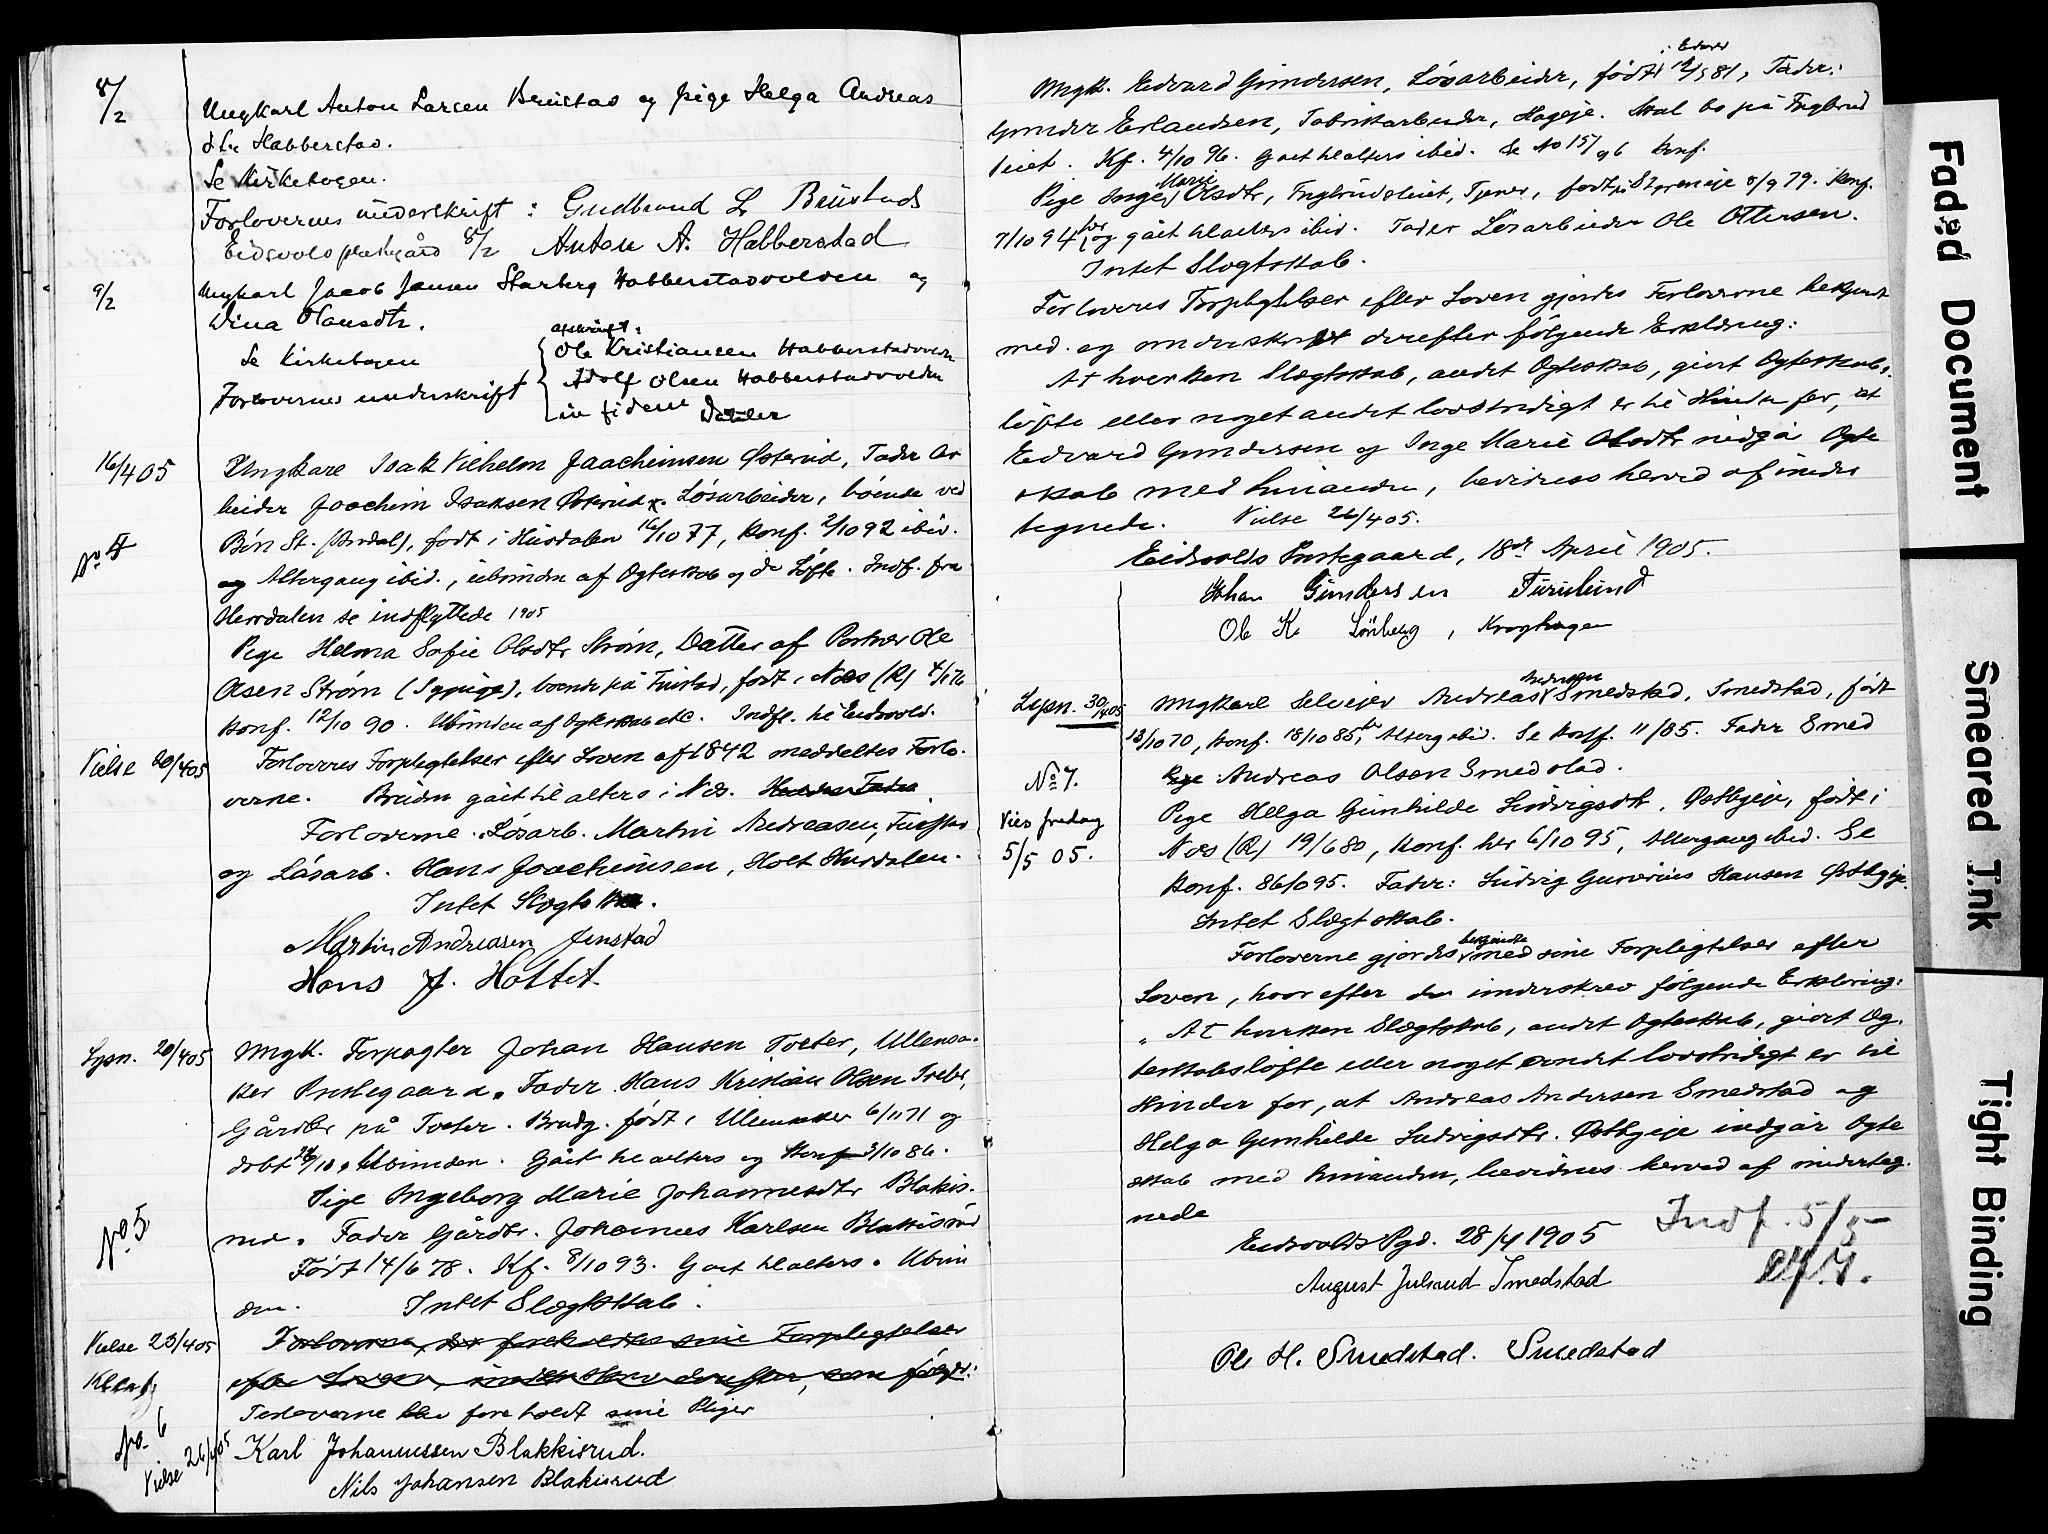 8/2
Ungkarl Anton Larsen Brustad og pige Helga Andreas
dtr Habberstad.
Se Kirkebogen.
Forlovernes underskrift: Gudbrand L. Brustad
Eidsvolds prestegård 8/2 Anton A. Habberstad
9/2
Ungkarl Jacob Jansen Starberg Habberstadvolden og
Dina Olausdtr.
Se Kirkebogen
Forlovernes underskrift
afskrift:
Ole Kristiansen Habberstadvolden
Adolf Olsen Habberstadvolden
in fidem
16/4 05
Ungkarl Isak Vilhelm Joachimsen Østerud, Fader Ar
beider Joachim Isaksen Østerud. Løsarbeider, boende ved
Bön St. (Ârdal), født i Hurdalen 16/10 77, konf. 2/10 92 ibid.
og Altergang ibid., ubunden af Ogteskab og do Løfte. Indf. fra
Hurdalen se indflyttede 1905
Pige Helma Sofie Olsdtr Strøm, Datter af Portner Ole
Olsen Strøm (Sypige), boende på Finstad, født i Næs (R) 4/1 76
konf. 12/10 90. Ubunden af Ogteskab etc. Indfl. til Eidsvold.
Vielse 20/4 05
Forloveres Forpligtelser efter Loven af 1842 meddeltes Forlo-
verne. Bruden gået til alters i Næs.
Forloverne. Løsarb. Martin Andreasen, Finstad
og Løsarb. Hans Joachimsen, Holt Hurdalen.
Intet Slægtskab.
Martin Andreasen Finstad
Hans J. Holtet
Lysn. 20/4 05
Ungk. Forpagter Johan Hansen Tveter, Ullensa-
ker Prestegaard. Fader Hans Kristian Olsen Tveter,
Gårdbr på Tveter. Brudg. født i Ullensaker 6/11 71 og
døbt 26/12. Ubunden. Gået til alters og Konf 3/10 86.
No 5
Pige Ingeborg Marie Johannesdtr Blakis-
rud. Fader Gårdbr. Johannes Karlsen Blakisrud
Født 14/6 78. Kf. 8/10 93. Gået til alters. Ubun
den. Intet Slægtskab.
Vielse 23/4 05
Forloverne, der foreholdtes sine Forpligtelser
efter Loven, underskrev derefter, som følger:
Forloverne blev foreholdt sine Pligter
No. 6
Vielse 26/4 05
Karl Johannessen Blakkisrud.
Nils Johansen Blakisrud
Ungk. Edvard Gundersen, Løsarbeider, født i Eidsvold 12/5 81, Fader:
Gunder Erlandsen, Fabrikarbeider, Hageje. Skal bo på Fngbrud
eiet. Kf. 4/10 96. Gaet til alters ibid. Se No 157 og 6 konf.
Pige Inge Marie Olsdtr, Fngbrudeiet, Tjener, født på Størengeje 8/9 79. Konf.
7/10 94 her og gået til alters ibid. Fader Løsarbeider Ole Ottersen.
Intet Slægtskab.
Forloveres Forpligtelser efter Loven gjordes Forloverne bekjendt
med og underskrevet derefter følgende Erklæring:
At hverken Slægtskab, andet Ogteskab, givet Ogteskabs-
løfte eller noget andet lovstridigt er til Hinder for, at
Edvard Gundersen og Inge Marie Olsdtr indgå Ogte
skab med hinanden, bevidnes herved af under
tegnede. Vielse 26/4 05.
Eidsvolds Prestegaard, 18de April 1905.
Johan Gundersen Turulund
Ole K. Lönberg, Kroghagen
Lysn. 30/4 05
Ungkarl Selveier Andreas Andersen Smedstad, Smedstad, født
13/10 70, konf. 18/10 85, Alterg ibid. Se konf. 11/85. Fader Smed
Andreas Olsen Smedstad.
No 7.
Vies fredag
5/5 05.
Pige Helga Gunhilde Ludvigsdtr. Østbygeje, født i
Næs (R) 19/6 80, konf. her 6/10 95, Altergang ibid. Se
konf. 86/095. Fader: Ludvig Gunerius Hansen Østbygeje.
Intet Slægtskab.
Forloverne gjordes bekjendte med sine Forpligtelser efter
Loven, hvorefter de underskrev følgende Erklæring:
"At hverken Slægtskab, andet Ogteskab, givet Og-
teskabsløfte eller noget andet lovstridigt er til
Hinder for, at Andreas Andersen Smedstad og
Helga Gunhilde Ludvigsdtr. Østbygeje indgår Ogte
skab med hinanden, bevidnes herved af underteg-
nede
Eidsvolds Pgd. 28/4 1905
Indf. 5/5
August Julsrud Smedstad
Ole H. Smedstad. Smedstad
Faded Document
Smeared Ink
Tight Binding